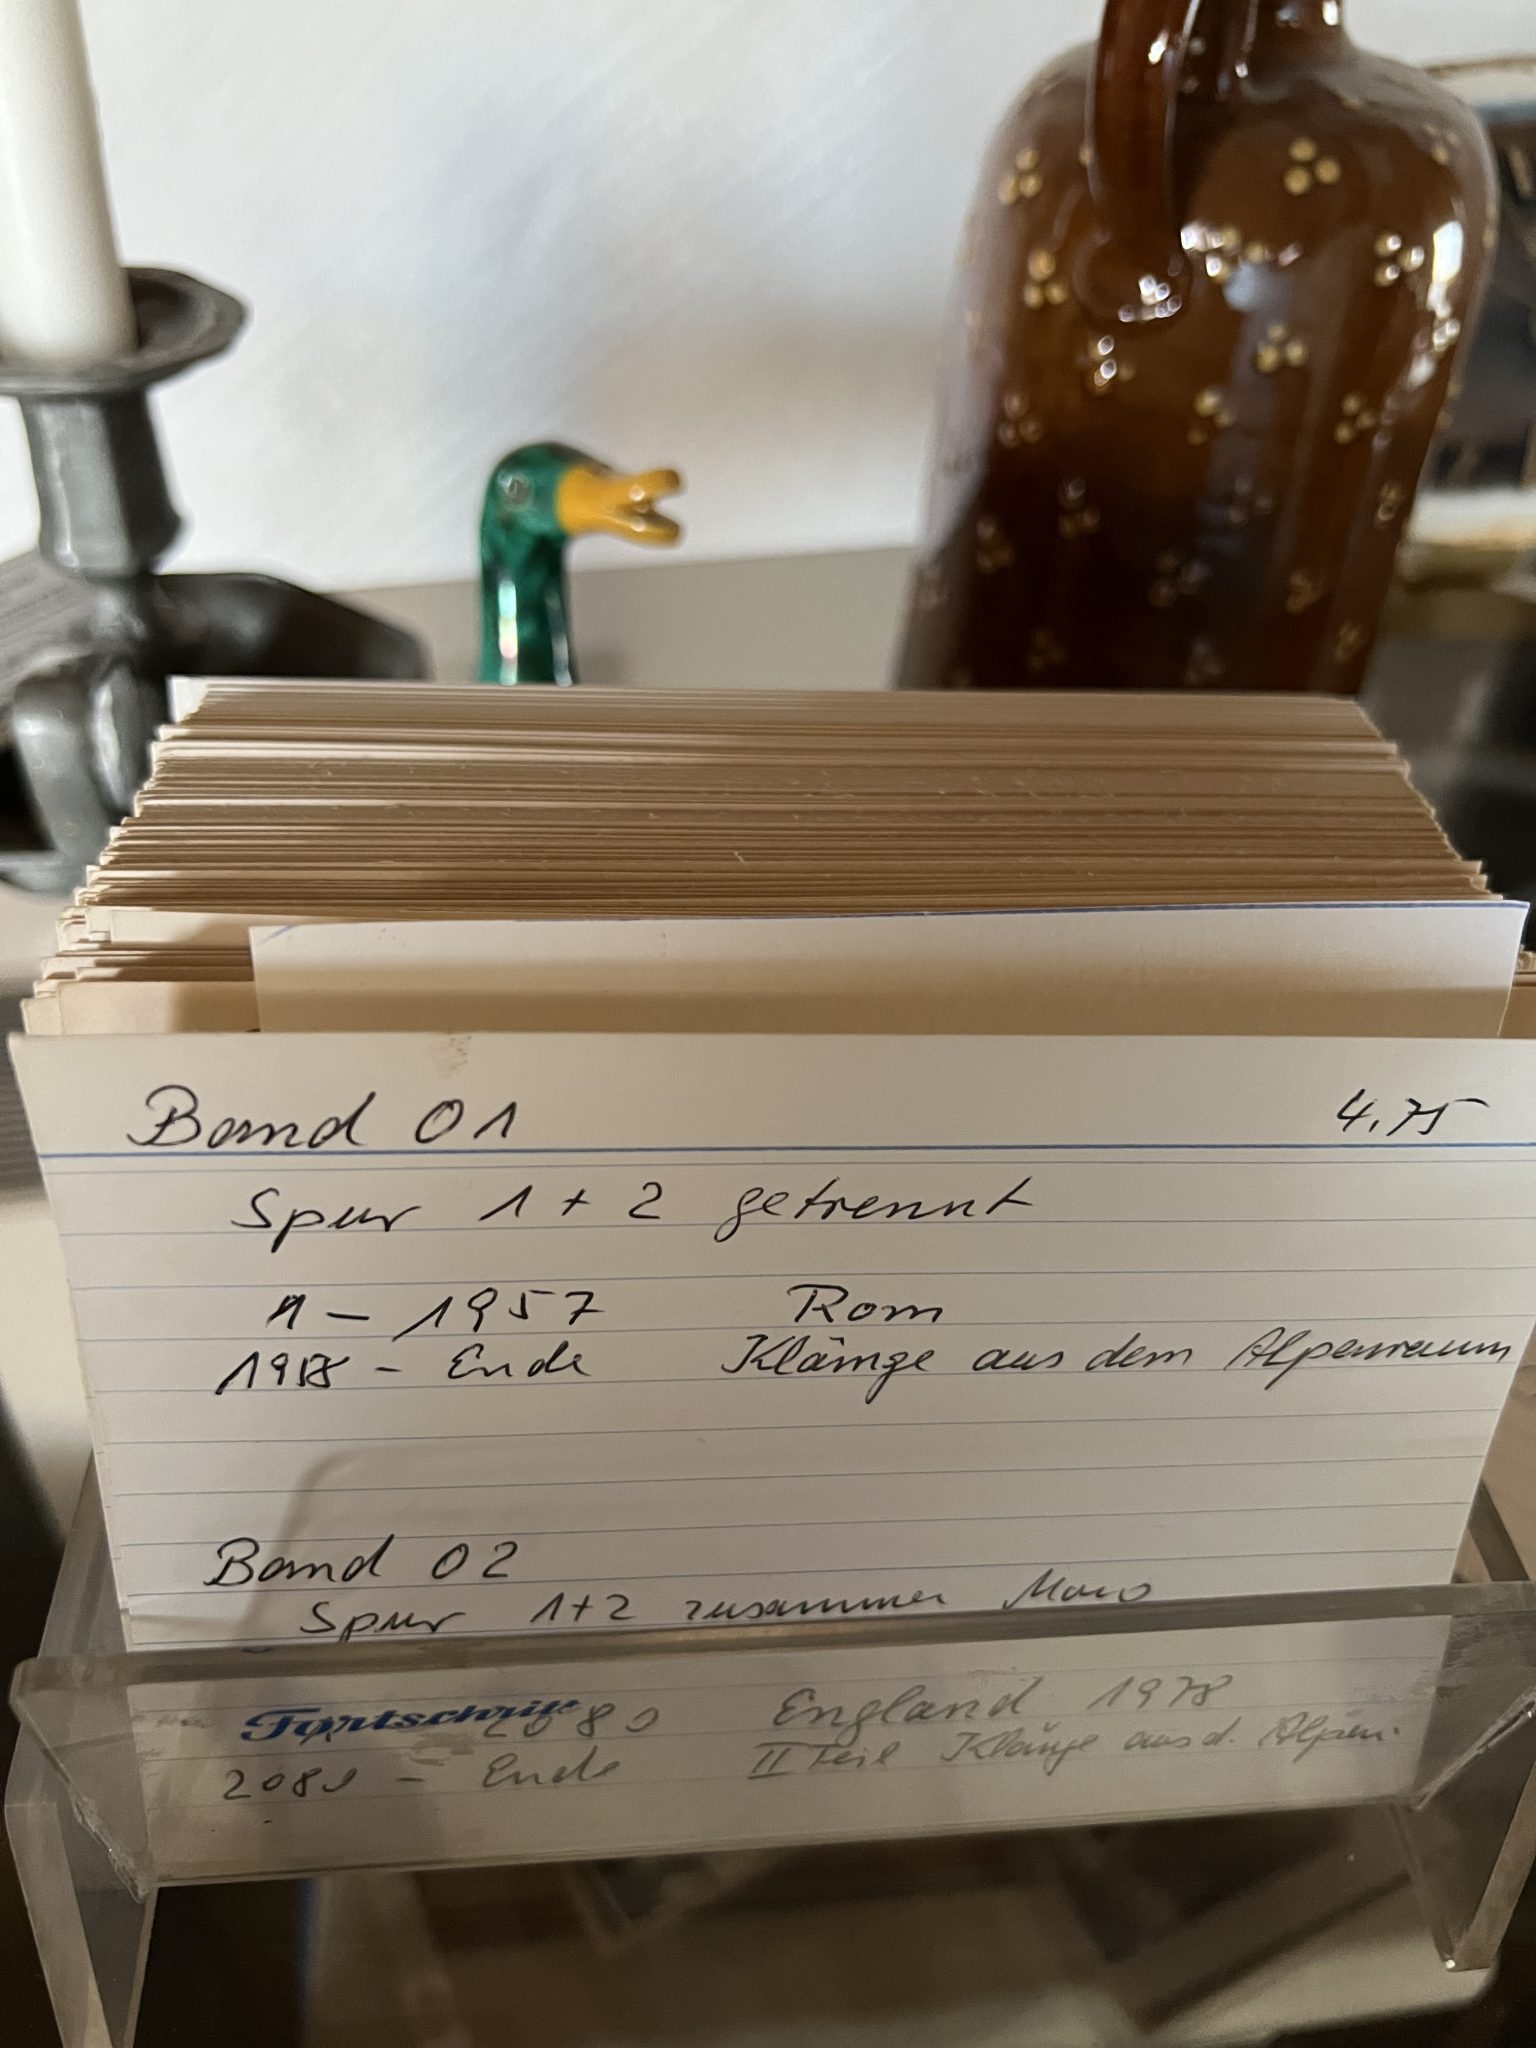 Band 01 4.75
Spur 1 + 2 getrennt
1 – 1957 Rom
1958 – Ende Klänge aus dem Alpenraum
Band 02
Spur 1+2 zusammen Mono
Fortschritt
2080 England 1978
– Ende II Teil Klänge aus d. Alpen.